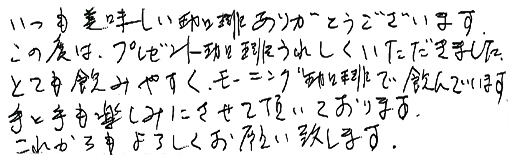 いつも美味しい珈琲ありがとうございます.
この度は、プレゼント珈琲うれしくいただきました.
とても飲みやすく、モーニング珈琲で飲んでいます
とても楽しみにさせて頂いております.
これからもよろしくお願い致します.